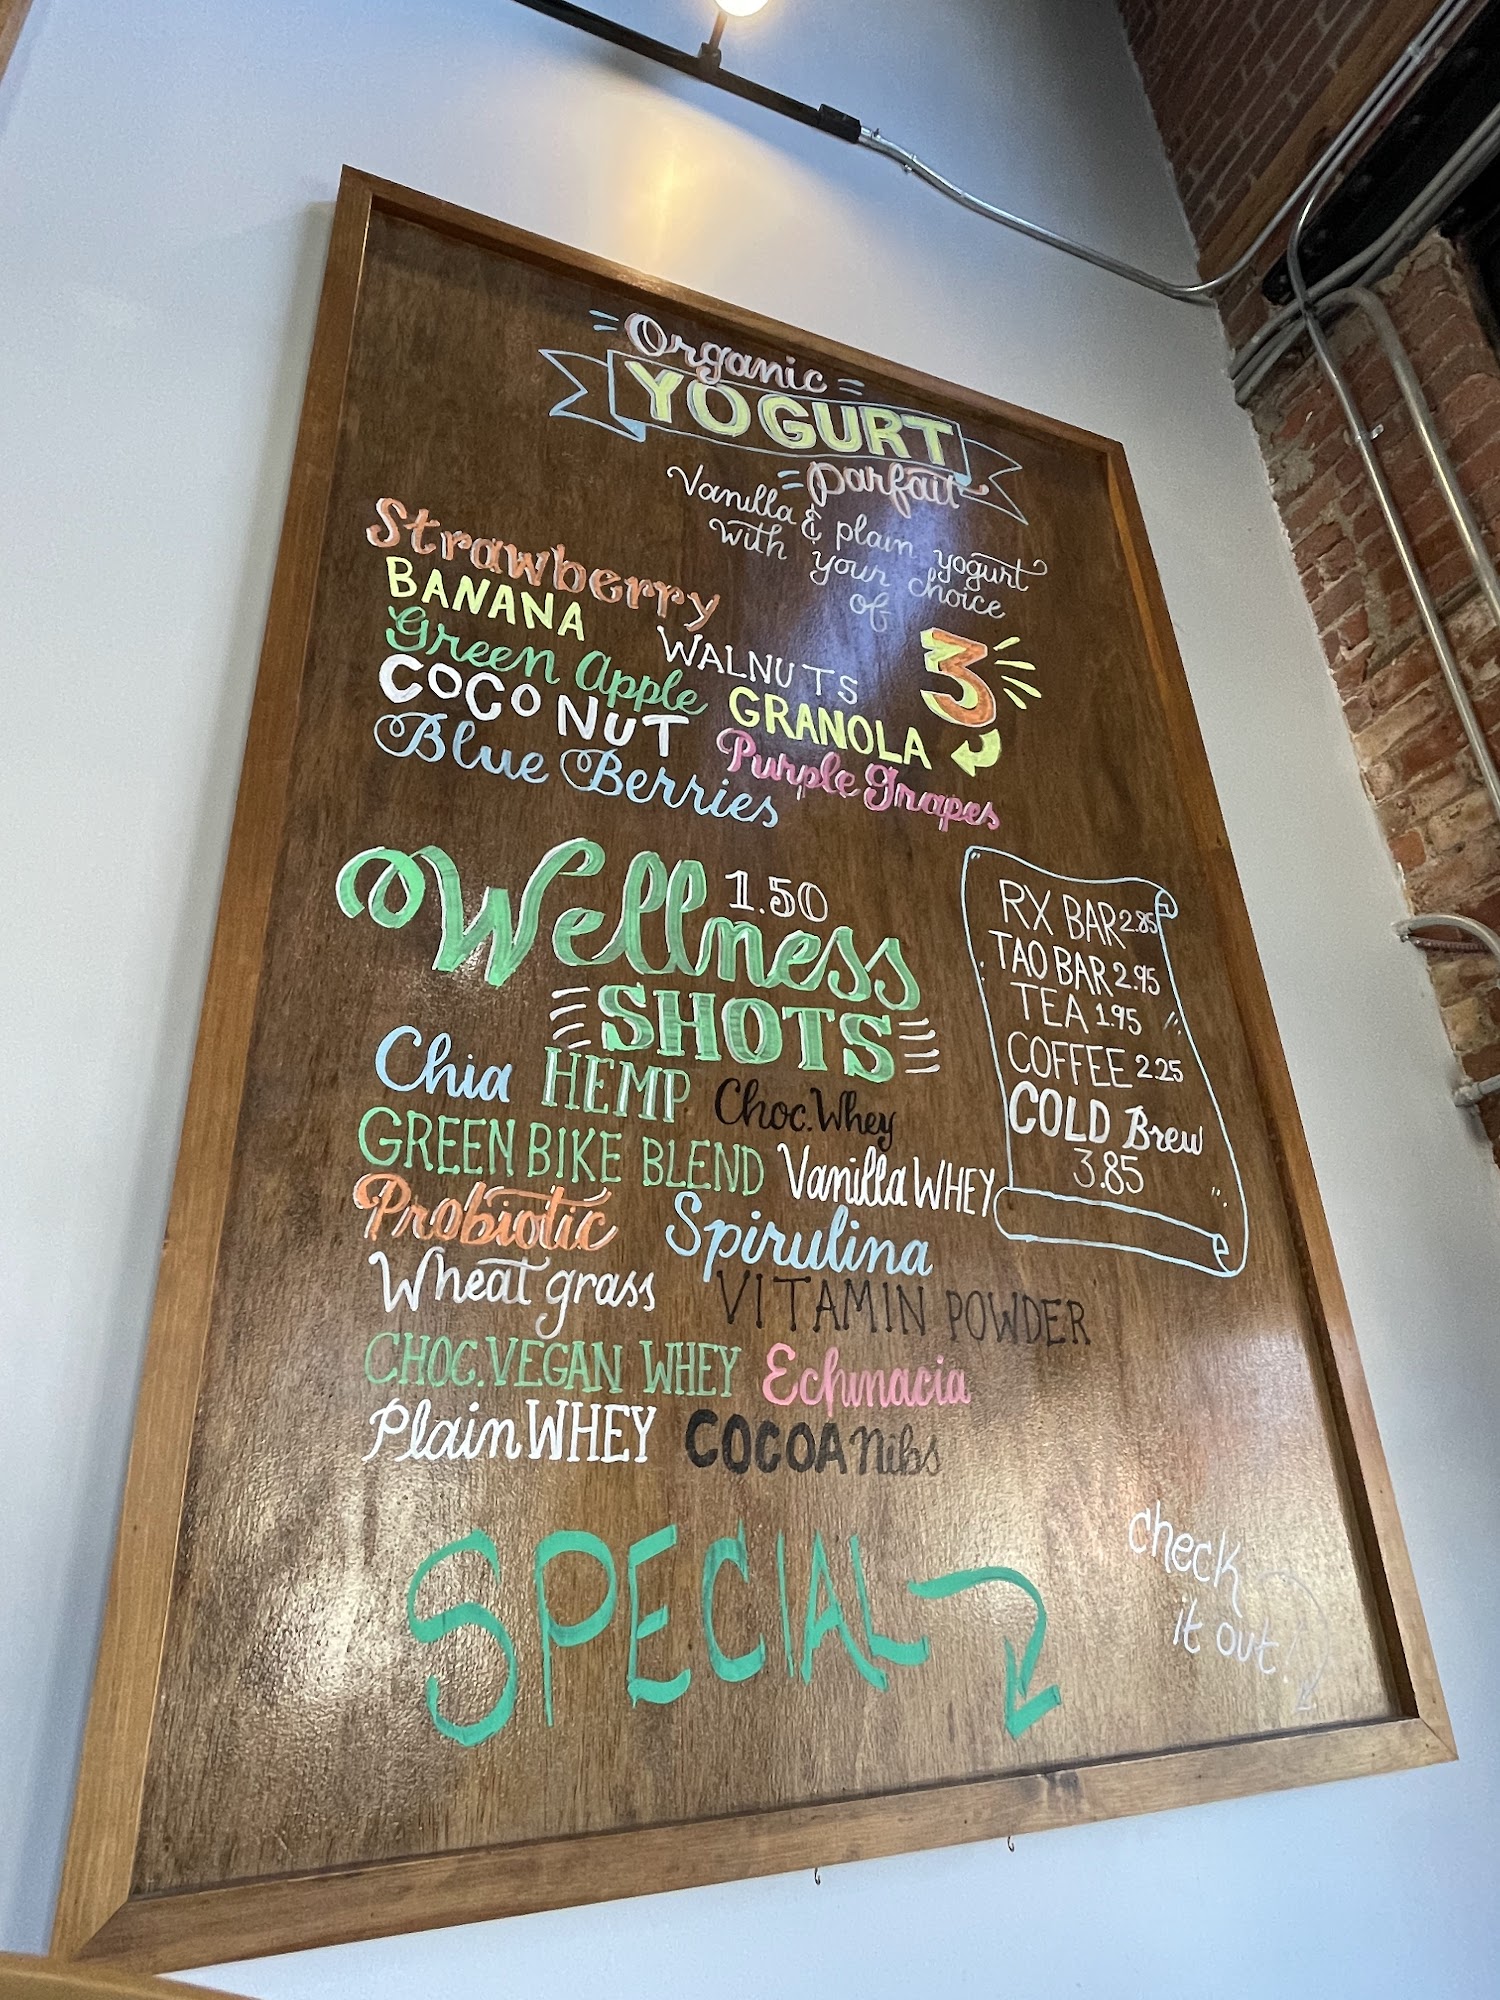 Organic
YOGURT
Parfait
Vanilla & plain yogurt
with your choice
of
3
Strawberry
BANANA
WALNUTS
Green Apple
GRANOLA
COCONUT
Purple Grapes
Blue Berries
Wellness 1.50
SHOTS
Chia HEMP Choc. Whey
GREEN BIKE BLEND Vanilla WHEY
Probiotic Spirulina
Wheat grass VITAMIN POWDER
CHOC. VEGAN WHEY Echinacia
Plain WHEY COCOA Nibs
RX BAR 2.85
TAO BAR 2.95
TEA 1.95
COFFEE 2.25
COLD Brew
3.85
SPECIAL
check
it out!